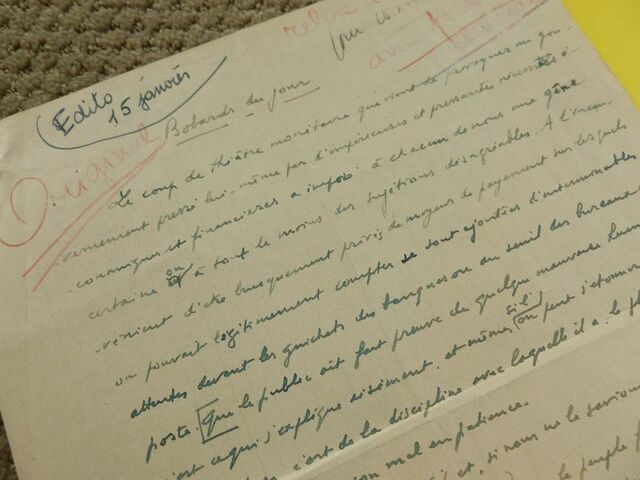 relire
avec
Edito
15 janvier
Original
Bobards du jour
Le coup de théâtre monétaire que vient de provoquer un gou-
vernement pressé lui-même par d'impérieuses et pressantes nécessités é-
conomiques et financières a imposé à chacun de nous une gêne
certaine ou à tout le moins des sujétions désagréables. A l'incon-
-vénient d'être brusquement privés de moyens de payement sur lesquels
on pouvait légitimement compter se sont ajoutées d'interminables
attentes devant les guichets des banques ou au seuil des bureaux
poste. Que le public ait fait preuve de quelque mauvaise hum
c'est ce qui s'explique aisément, et même, si l'on peut s'étonner
c'est de la discipline avec laquelle il a le pl
mal en patience.
et, si nous ne le savions
le peuple f